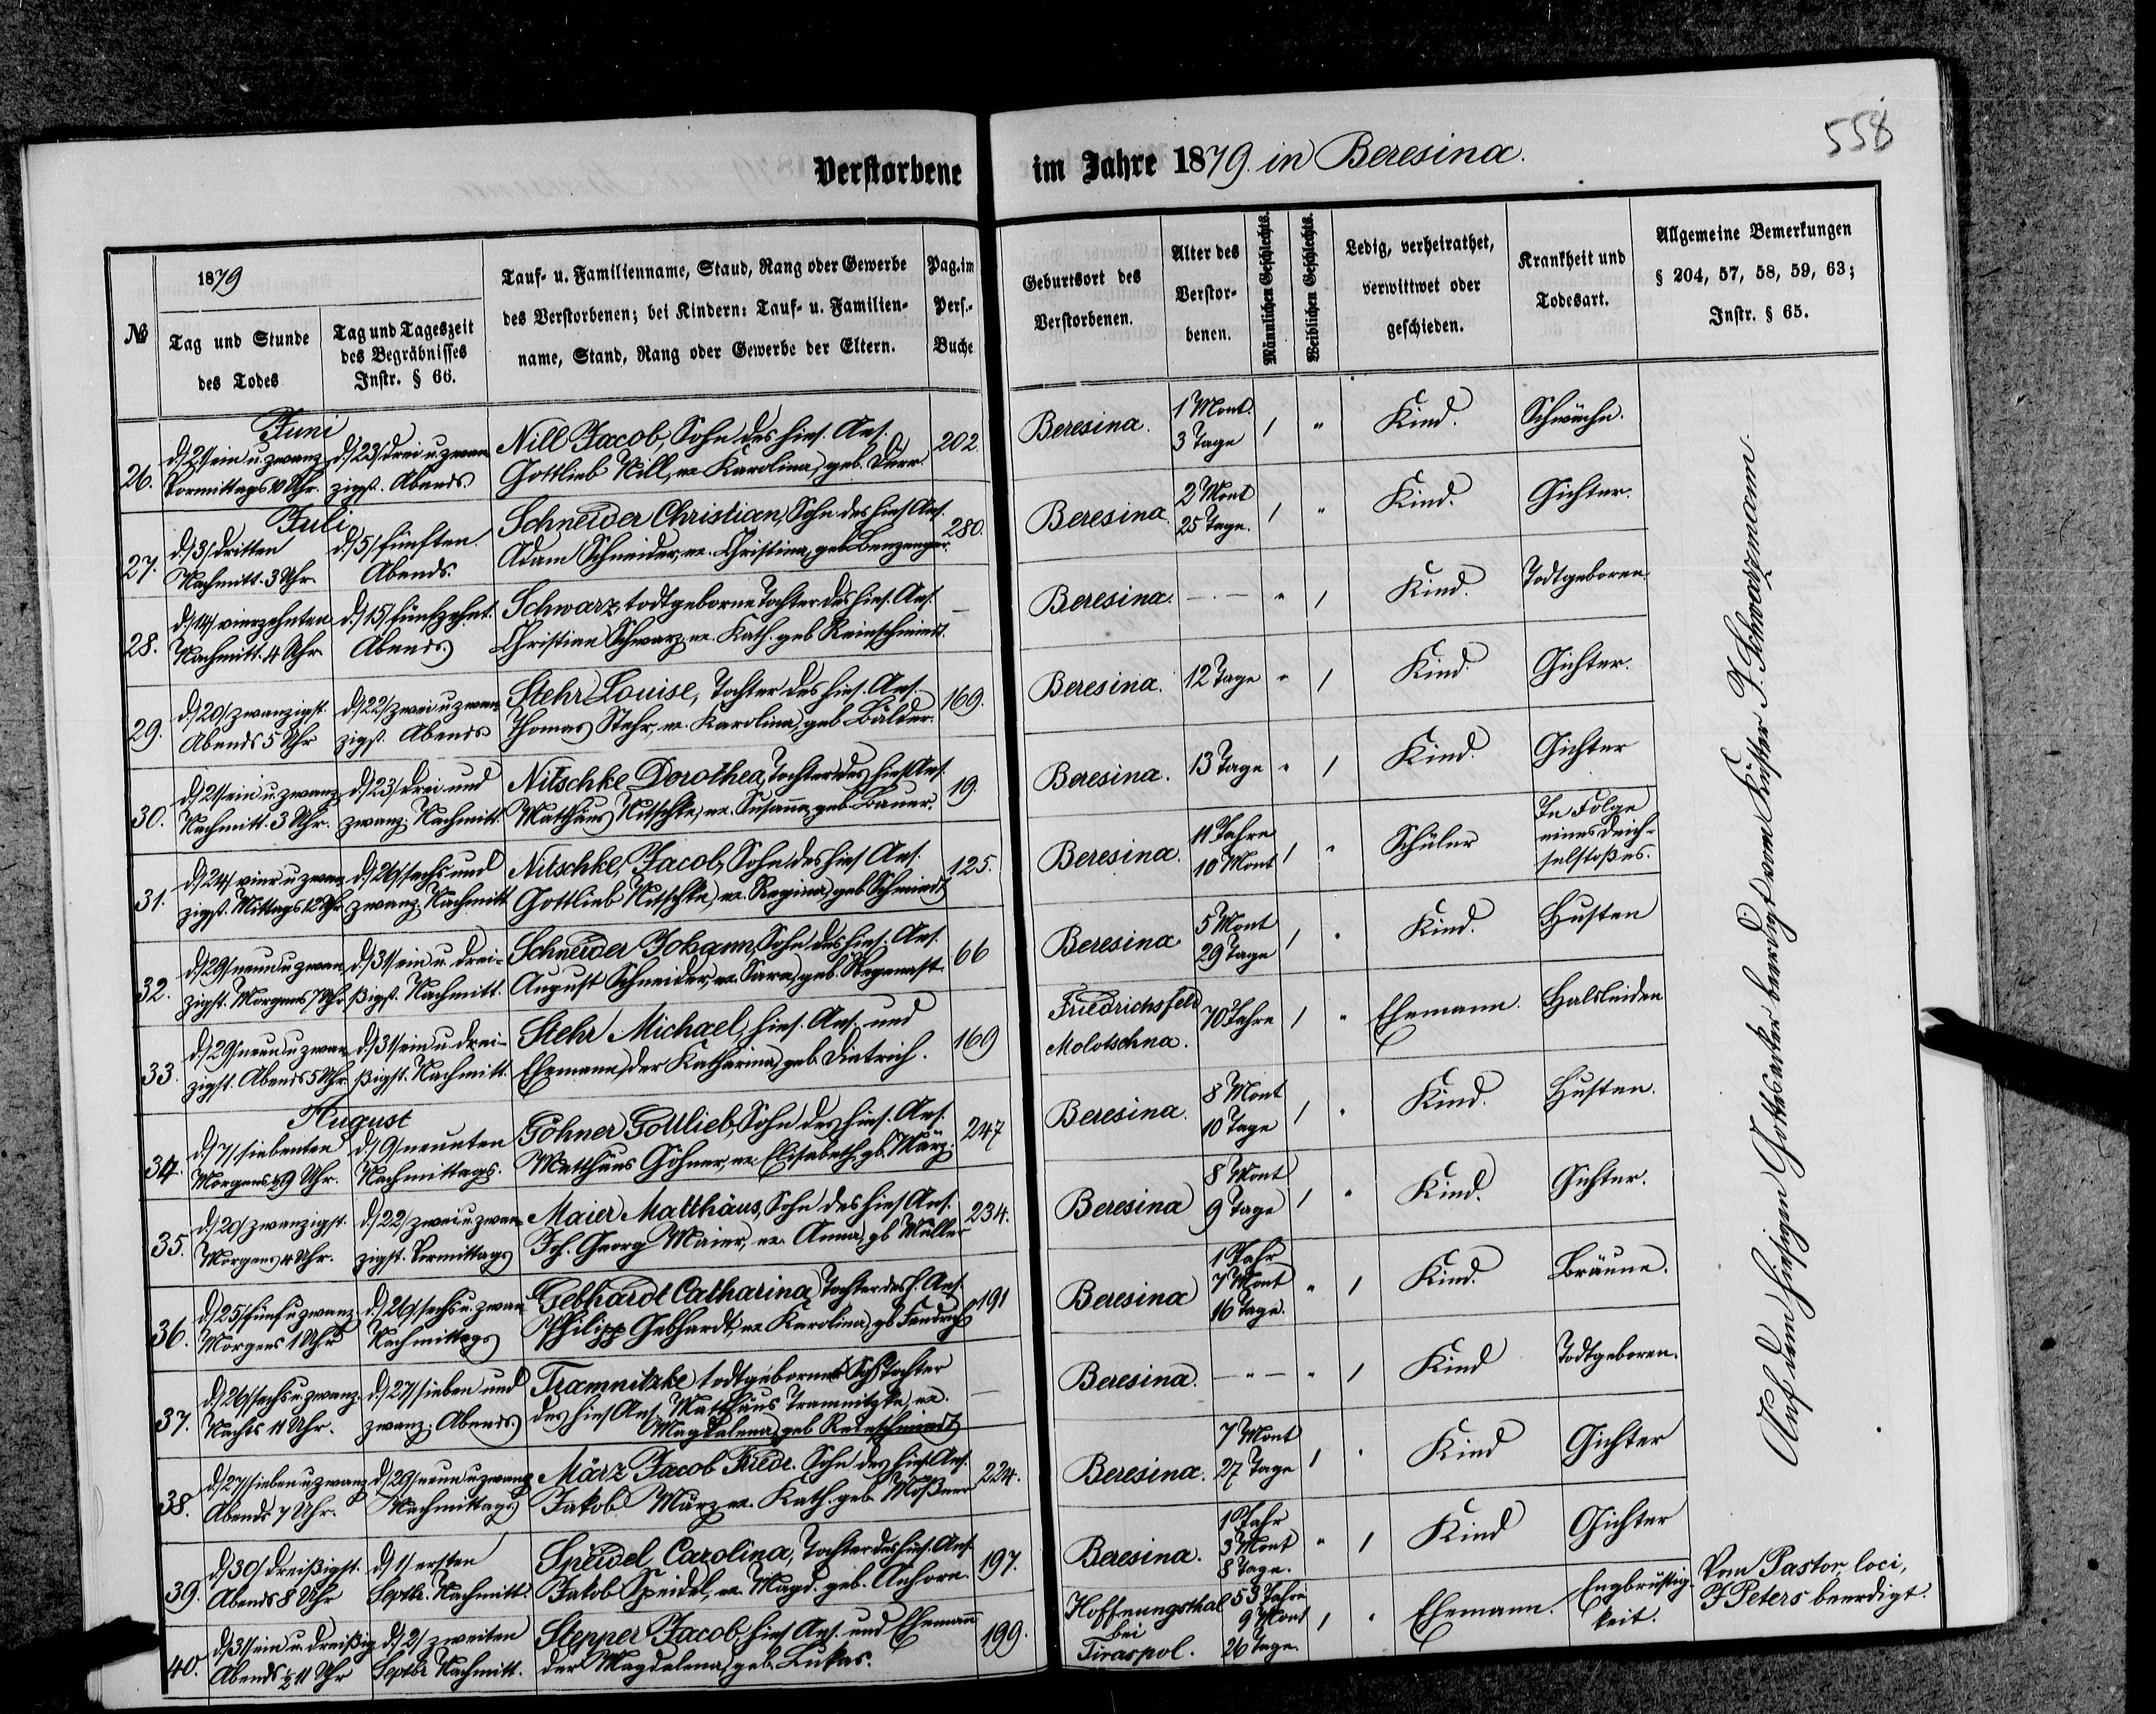 558
Verstorbene im Jahre 1879. in Beresina.
№
1879
Tag und Stunde
des Todes
Tag und Tageszeit
des Begräbnisses
Instr. § 66.
Tauf- u. Familienname, Stand, Rang oder Gewerbe
des Verstorbenen; bei Kindern: Tauf- u. Familien-
name, Stand, Rang oder Gewerbe der Eltern.
Pag. im
Pers.-
Buche
Geburtsort des
Verstorbenen.
Alter des
Verstor-
benen.
Männlichen Geschlechts.
Weiblichen Geschlechts.
Ledig, verheirathet,
verwittwet oder
geschieden.
Krankheit und
Todesart.
Allgemeine Bemerkungen
§ 204, 57, 58, 59, 63;
Instr. § 65.
Juni
26.
d./21/ ein u. zwanz.
Vormittags 10 Uhr.
d./23/ drei u. zwan
zigst. Abends.
Nill Jacob, Sohn des hies. Ans.
Gottlieb Nill, u. Karolina, geb. Dürr.
202.
Beresina.
1 Mont.
3 Tage
/ "
Kind.
Schwäche.
Juli
27.
d./3/ dritten
Nachmitt. 3 Uhr.
d./5/ fünften
Abends.
Schneider Christian, Sohn des hies. Ans.
Adam Schneider, u. Christina, geb. Benzenger.
280.
Beresina.
2 Mont
25 Tage.
/ "
Kind.
Gichter.
28.
d./14/ vierzehnten
Nachmitt. 4 Uhr.
d./15/ fünfzehnt.
Abends.
Schwarz, todtgeborne Tochter des hies. Ans.
Christian Schwarz, u. Kath. geb. Reinschmidt.
—
Beresina.
— . —
" /
Kind.
Todtgeboren.
29.
d./20/ zwanzigst.
Abends 5 Uhr
d./22/ zwei u. zwan
zigst. Abends
Stehr Louise, Tochter des hies. Ans.
Thomas Stehr, u. Karolina, geb. Bälder.
169.
Beresina.
12 Tage
" /
Kind.
Gichter.
30.
d./21/ ein u. zwanz.
Nachmitt. 3 Uhr.
d./23/ drei und
zwanz. Nachmitt.
Nitschke Dorothea, Tochter des hies. Ans.
Matthäus Nitschke, u. Susanna, geb. Bauer.
19.
Beresina.
13 Tage
" /
Kind.
Gichter
31.
d./24/ vier u. zwan
zigst. Mittags 12 Uhr
d./26/ sechs und
zwanz. Nachmitt
Nitschke, Jacob, Sohn des hies. Ans.
Gottlieb Nitschke, u. Regina, geb. Schmiedt
125.
Beresina.
11 Jahre
10 Mont
/ "
Schüler
In Folge
eines Deich-
selstoßes.
32.
d./29/ neun u. zwan
zigst. Morgens 7 Uhr
d./31/ ein u. drei-
ßigst. Nachmitt.
Schneider Johann, Sohn des hies. Ans.
August Schneider, u. Sara, geb. Regenast.
66
Beresina
5 Mont
29 Tage
/ "
Kind.
Husten
33.
d./29/ neun u. zwan
zigst. Abends 5 Uhr
d./31/ ein u. drei-
ßigst. Nachmitt.
Stehr Michael, hies. Ans. und
Ehemann der Katharina, geb. Dietrich.
169
Friedrichsfeld
Molotschna.
70 Jahre
/ "
Ehemann.
Halsleiden
August
34.
d./7/ siebenten
Morgens ½9 Uhr.
d./9/ neunten
Nachmittags.
Göhner Gottlieb, Sohn des hies. Ans.
Matthäus Göhner, u. Elisabeth, gb. März.
247
Beresina.
8 Mont
10 Tage
/ "
Kind.
Husten.
35.
d./20/ zwanzigst.
Morgens 4 Uhr.
d./22/ zwei u. zwan
zigst. Vormittags
Maier Matthäus, Sohn des hies. Ans.
Joh. Georg Maier, u. Anna, gb. Müller
234.
Beresina
8 Mont
9 Tage
/ "
Kind.
Gichter.
36.
d./25/ fünf u. zwanz.
Morgens 1 Uhr
d./26/ sechs u. zwan
Nachmittags
Gebhardt Catharina, Tochter des h. Ans.
Philipp Gebhardt, u. Karolina, gb. Fandrich
191
Beresina
1 Jahr
7 Mont
16 Tage.
" /
Kind.
Bräune.
37.
d./26/ sechs u. zwanz.
Nachts 11 Uhr.
d./27/ sieben und
zwanz. Abends
Tramnitzke todtgeborne Tochter
des hies. Ans. Matthäus Tramnitzke, u.
Magdalena, geb. Reinschmiedt
—
Beresina.
— " —
" /
Kind
Todtgeboren.
38.
d./27/ sieben u. zwanz
Abends 7 Uhr.
d./29/ neun u. zwanz
Nachmittags
März Jacob Friedr. Sohn des hies. Ans.
Jakob März u. Kath. geb. Mößner
224.
Beresina.
7 Mont
27 Tage
/ "
Kind
Gichter
39.
d./30/ dreißigst.
Abends 8 Uhr
d./1/ ersten
Septbr. Nachmitt.
Speidel Carolina, Tochter des hies. Ans.
Jakob Speidel, u. Magd. geb. Anhorn.
197.
Beresina.
1 Jahr
3 Mont
8 Tage.
" /
Kind
Gichter
40.
d./31/ ein u. dreißig.
Abends ½11 Uhr
d./2/ zweiten
Septbr Nachmitt.
Stepper Jacob, hies. Ans. und Ehemann
der Magdalena, geb. Lukas.
199.
Hoffnungsthal
bei
Tiraspol.
53 Jahre
9 Mont
26 Tage.
/ "
Ehemann.
Engbrüstig-
keit.
Vom Pastor, loci,
J Peters beerdigt.
Auf dem hiesigen Gottesacker beerdigt vom Küster J. Schwarzmann.